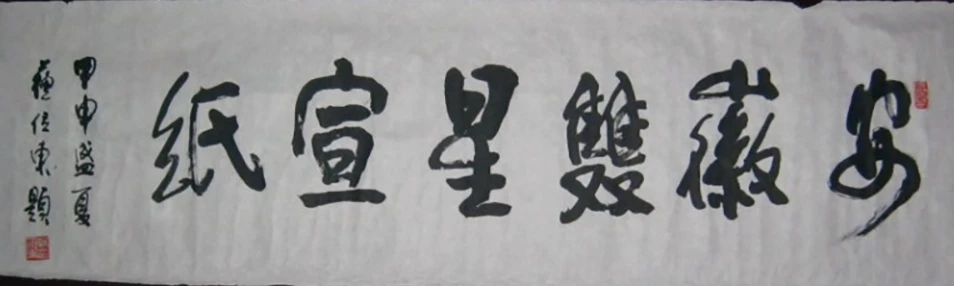 安徽雙星宣紙
甲申盛夏
蘇位東題